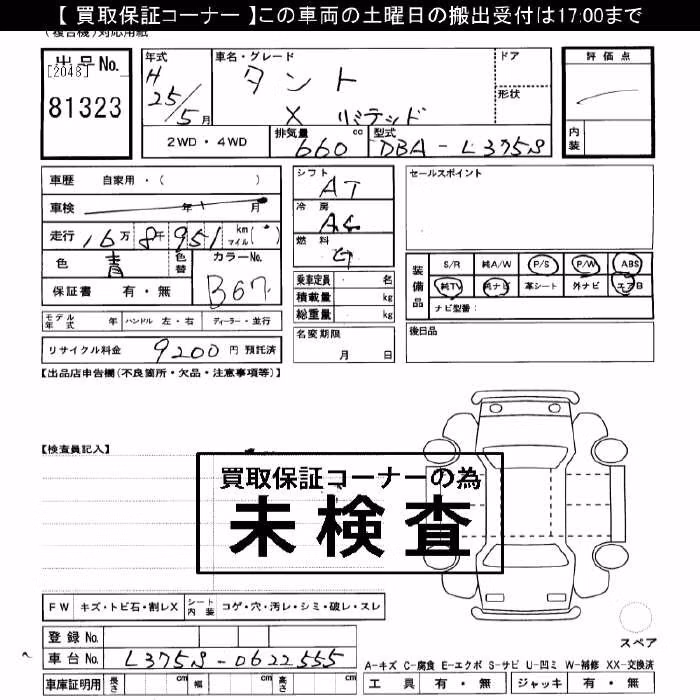 【 買取保証コーナー 】この車両の土曜日の搬出受付は17:00まで
(複合機)対応用紙
出品No.
[2048]
81323
年式
H
25/5月
車名・グレード
タント
X リミテッド
ドア
形状
評価点
内装
2WD・4WD
排気量 660 cc
型式 DBA-L375S
車歴 自家用・( )
車検 年 月
走行 16万8千951 km マイル( )
色 青 色替
カラーNo. B67
保証書 有・無
モデル年式 年 ハンドル 左・右 ディーラー・並行
リサイクル料金 9200円 預託済
シフト AT
冷房 AC
燃料
乗車定員 名
積載量 kg
総重量 kg
名変期限
月 日
セールスポイント
装備品
S/R 純A/W P/S P/W ABS
純TV 純ナビ 革シート 外ナビ エアB
ナビ型番:
後日品
【出品店申告欄(不良箇所・欠品・注意事項等)】
【検査員記入】
買取保証コーナーの為
未検査
FW キズ・トビ石・割レX シート内装 コゲ・穴・汚レ・シミ・破レ・スレ
登録No.
車台No. L375S-0622555
車庫証明用 長さ cm 幅 cm 高さ cm
スペア
A-キズ C-腐食 E-エクボ S-サビ U-凹ミ W-補修 XX-交換済
工具 有・無 ジャッキ 有・無